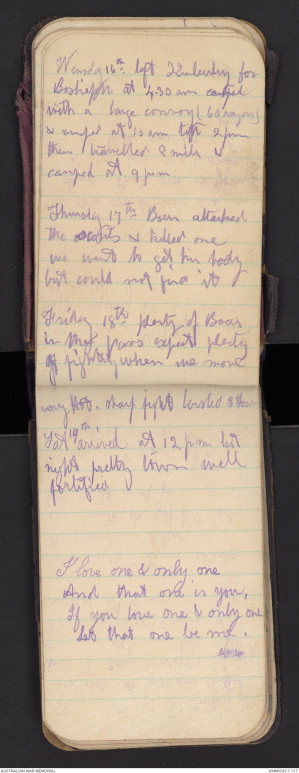 Wensda 16th left Kimberley for
Boshoff at 4.30 am
with a large convoy (60 wagons)
& camped at 10 am left 2 pm
then travelled 8 miles &
camped at 9 pm
Thursdy 17th Boers attacked
the scouts & killed one
we went to get his body
but could not find it
Friday 18th plenty of Boers
in this pass expect plenty
of fighting when we move
very hot. sharp fight lasted 3 hours
Sat 19th arrived at 12 pm last
night pretty town well
fortified
I love one & only one
And that one is you,
If you love one & only one
Let that one be me.
AUSTRALIAN WAR MEMORIAL